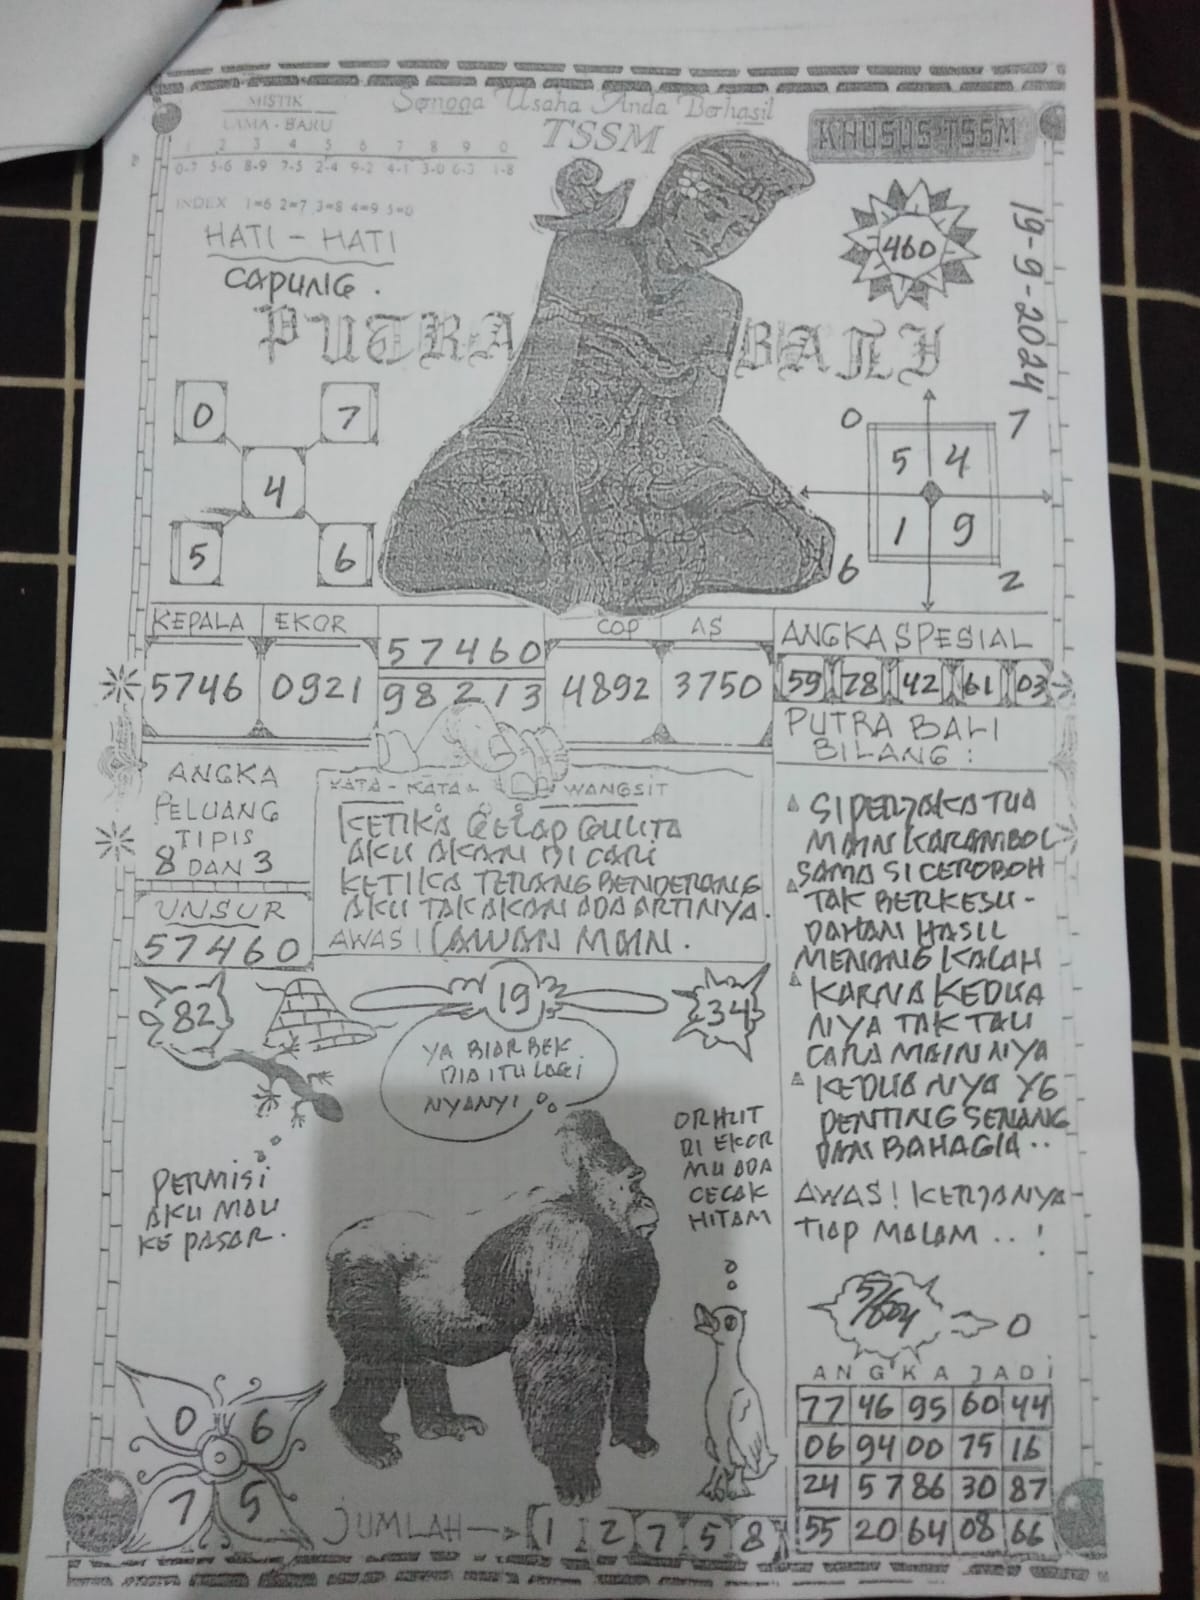 MISTIK
LAMA - BARU
1 2 3 4 5 6 7 8 9 0
0-7 5-6 8-9 7-5 2-4 9-2 4-1 3-0 6-3 1-8
INDEX 1=6 2=7 3=8 4=9 5=0
Semoga Usaha Anda Berhasil
TSSM
KHUSUS TSSM
19-9-2024
460
HATI - HATI
CAPUNG.
PUTRA BALI
0 7
4
5 6
0 7
5 4
1 9
6 2
KEPALA EKOR
5746 0921
57460
98213
COP AS
4892 3750
ANGKA SPESIAL
59 78 42 61 03
ANGKA
PELUANG
TIPIS
8 DAN 3
UNSUR
57460
KATA - KATA WANGSIT
KETIKA GELAP GULITA
AKU AKAN DI CARI
KETIKA TERANG BENDERANG
AKU TAK AKAN ADA ARTINYA.
AWAS! CAWAN MAIN.
PUTRA BALI
BILANG:
SI PERJAKA TUA
MAIN KARAMBOL
SAMA SI CEROBOH
TAK BERKESU-
DAHAN HASIL
MENANG KALAH
KARNA KEDUA
NYA TAK TAU
CARA MAIN NYA
KEDUA NYA YG
PENTING SENANG
DAN BAHAGIA..
AWAS! KERJANYA
TIAP MALAM..!
82
19
34
YA BIAR BEK
DIA ITU LAGI
NYANYI
PERMISI
AKU MAU
KE PASAR.
DI EKOR
MU ADA
CECAK
HITAM
0 6
7 5
JUMLAH
1 2 7 5 8
0
ANGKA JADI
77 46 95 60 44
06 94 00 75 16
24 57 86 30 87
55 20 64 08 66